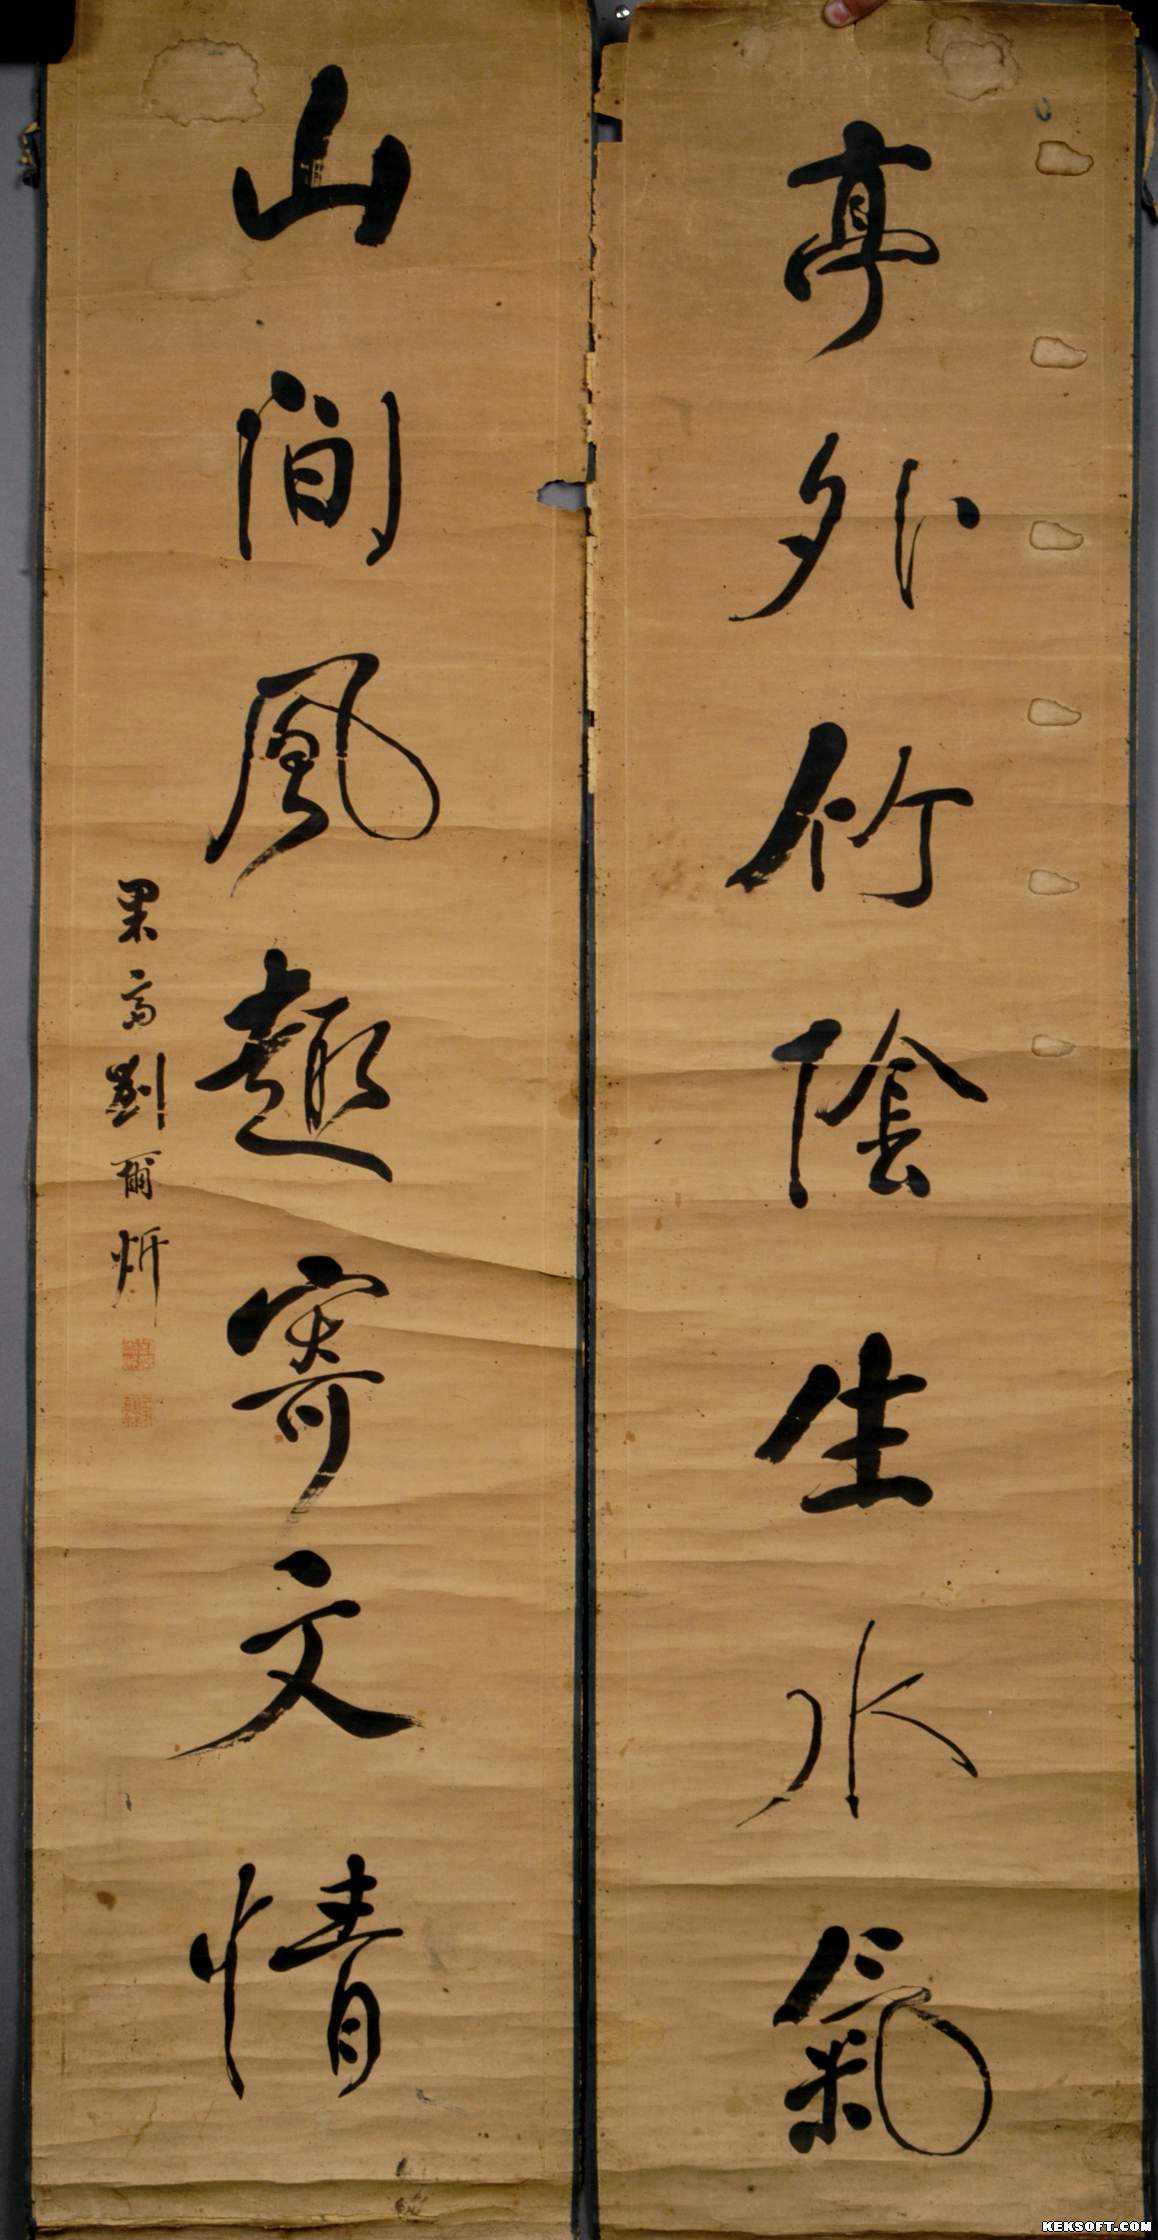 亭外竹陰生水氣
山間風趣寄文情
果齋劉爾炘
KEKSOFT.COM